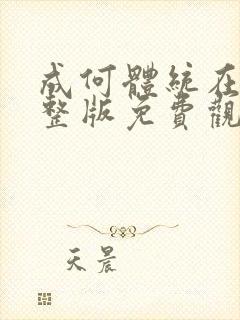 成何體統在
整版免費觀
天晨